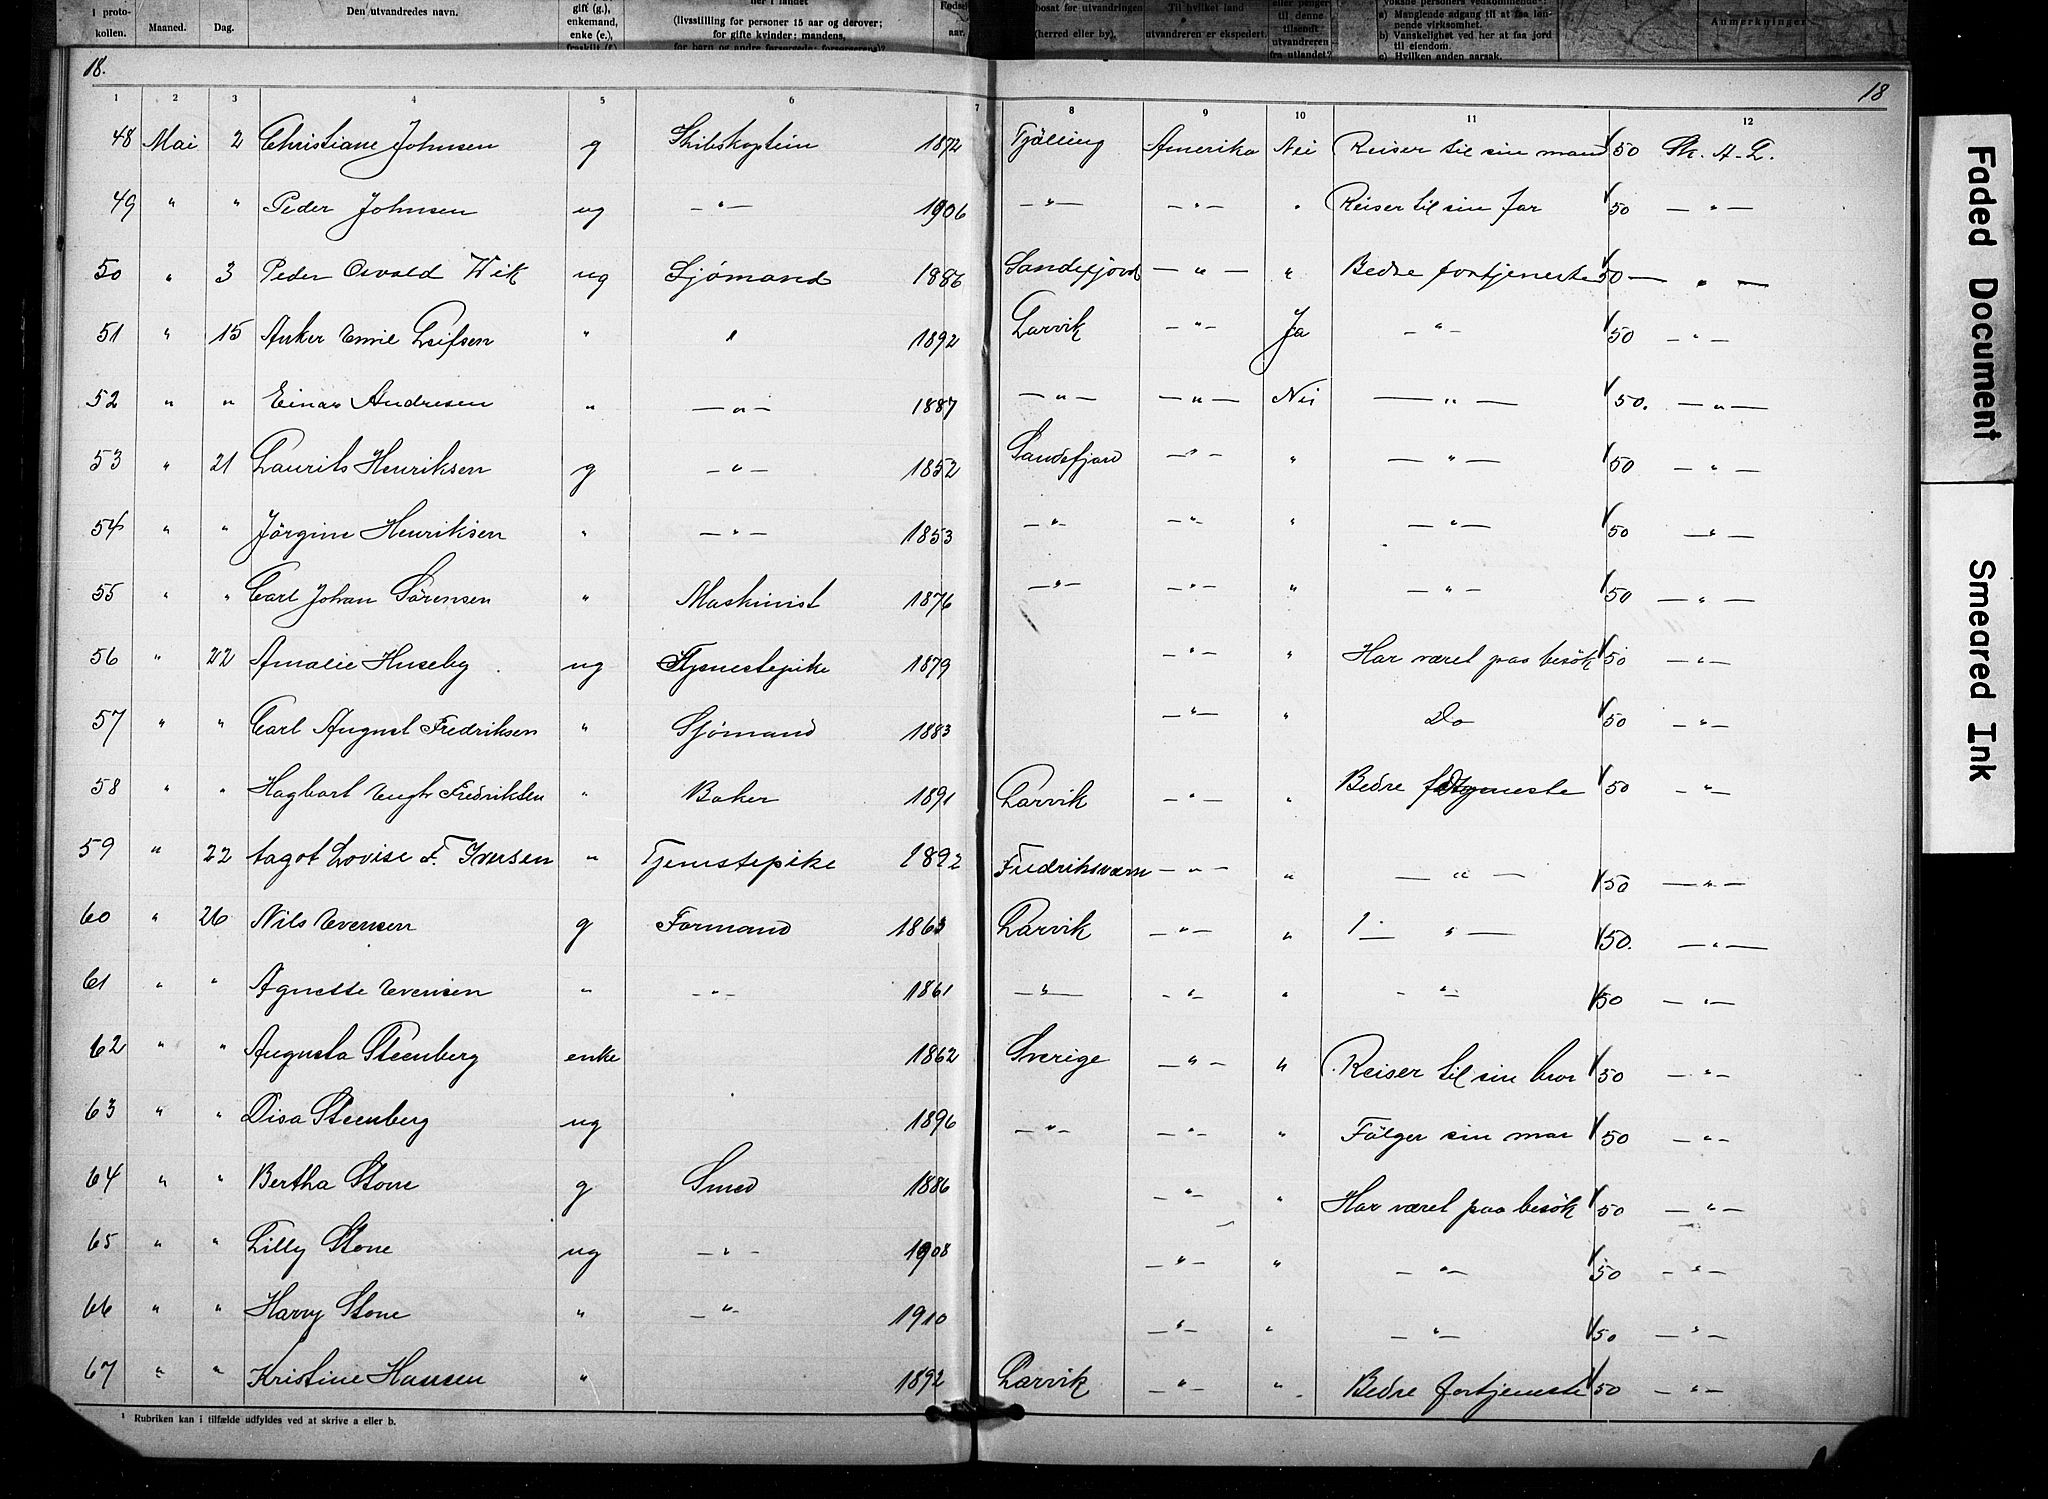 i proto-
kollen.
Maaned.
Dag.
Den utvandredes navn.
gift (g.),
enkemand,
enke (e.),
her i landet
(livsstilling for personer 15 aar og derover;
for gifte kvinder: mandens,
aar.
bosat før utvandringen
(herred eller by).
Til hvilket land
utvandreren er ekspedert.
eller penger
til denne
tilsendt
utvandreren
fra utlandet?
a) Manglende adgang til at faa løn-
nende virksomhet.
b) Vanskelighet ved her at faa jord
til eiendom.
c) Hvilken anden aarsak.
Anmerkninger
18. 18
1 2 3 4 5 6 7 8 9 10 11 12
48 Mai 2 Christiane Johnsen g Skibskaptein 1872 Tjölling Amerika Nei Reiser til sin mand 50 Sk. A. L.
49 " " Peder Johnsen ug —"— 1906 —"— —"— " Reiser til sin far 50 —"—
50 " 3 Peder Osvald Wik ug Sjömand 1886 Sandefjord —"— " Bedre fortjeneste 50 —"—
51 " 15 Anker Emil Leifsen " " 1892 Larvik —"— Ja —"— 50 —"—
52 " " Einar Andresen " —"— 1887 —"— —"— Nei —"— 50. —"—
53 " 21 Laurits Henriksen g —"— 1852 Sandefjord —"— " —"— 50 —"—
54 " " Jörgine Henriksen " —"— 1853 —"— —"— " —"— 50 —"—
55 " " Carl Johan Sörensen " Maskinist 1876 —"— —"— " —"— 50 —"—
56 " 22 Amalie Huseby ug Tjenestepike 1879 —"— " Har været paa besök 50 —"—
57 " " Carl August Fredriksen " Sjömand 1883 —"— " Do 50 —"—
58 " " Hagbart Fredriksen " Baker 1891 Larvik —"— " Bedre fortjeneste 50 —"—
59 " 22 Aagot Lovise F. Iversen " Tjenestepike 1892 Fredriksværn —"— " —"— 50 —"—
60 " 26 Nils Evensen g Formand 1863 Larvik —"— " —"— 50. —"—
61 " " Agnette Evensen " —"— 1861 —"— —"— " —"— 50 —"—
62 " " Augusta Steenberg enke 1862 Sverige —"— " Reiser til sin bror 50 —"—
63 " " Disa Steenberg ug 1896 —"— —"— " Fölger sin mor 50 —"—
64 " " Bertha Stone g Smed 1886 —"— " Har været paa besök 50 —"—
65 " " Lilly Stone ug —"— 1908 —"— " —"— 50 —"—
66 " " Harry Stone " —"— 1910 —"— " —"— 50 —"—
67 " " Kristine Hansen " 1892 Larvik —"— " Bedre fortjeneste 50 —"—
1 Rubriken kan i tilfælde utfyldes ved at skrive a eller b.
Faded Document
Smeared Ink